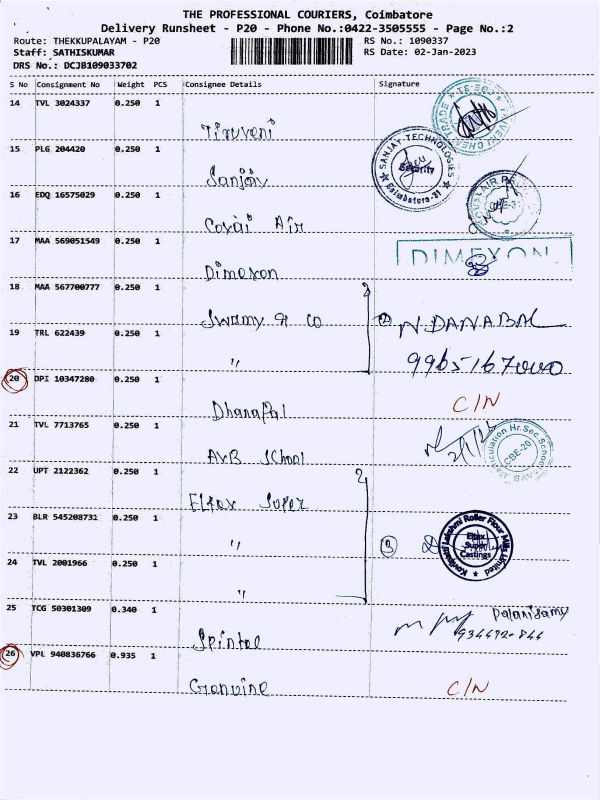 THE PROFESSIONAL COURIERS, Coimbatore
Delivery Runsheet - P20 - Phone No.:0422-3505555 - Page No.:2
Route: THEKKUPALAYAM - P20 RS No.: 1090337
Staff: SATHISKUMAR RS Date: 02-Jan-2023
DRS No.: DCJB109033702
S No Consignment No Weight PCS Consignee Details Signature
14 TVL 3024337 0.250 1
Tiruveni
15 PLG 204420 0.250 1
SANJAY TECHNOLOGIES
Security
Coimbatore-31
Sanjay
16 EDQ 16575029 0.250 1
Covai Air
17 MAA 569051549 0.250 1
DIMEXON
Dimexon
18 MAA 567700777 0.250 1
Swamy & co
N DANABAL
19 TRL 622439 0.250 1
"
20 DPI 10347280 0.250 1
Dhanapal
C/N
21 TVL 7713765 0.250 1
Matriculation Hr.Sec.School
CBE-20
AVB School
22 UPT 2122362 0.250 1
Elfex Super
23 BLR 545208731 0.250 1
"
3
Lakshmi Roller Flour Mills Limited
Super
Castings
24 TVL 2001966 0.250 1
"
25 TCG 50301309 0.340 1
Palanisamy
Spintec
26 VPL 940836766 0.935 1
Genuine
C/N